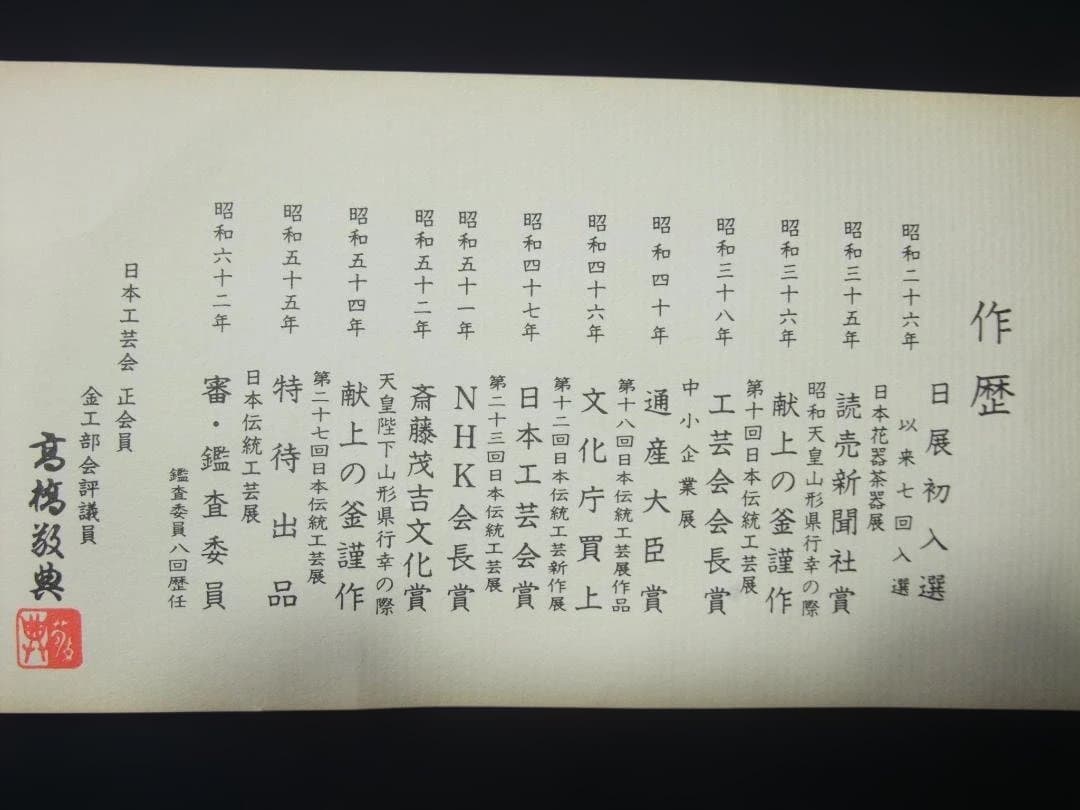 作歴
昭和二十六年 日展初入選
以来七回入選
日本花器茶器展
昭和三十五年 読売新聞社賞
昭和天皇山形県行幸の際
昭和三十六年 献上の釜謹作
第十回日本伝統工芸展
昭和三十八年 工芸会会長賞
中小企業展
昭和四十年 通産大臣賞
第十八回日本伝統工芸展作品
昭和四十六年 文化庁買上
第十二回日本伝統工芸新作展
昭和四十七年 日本工芸会賞
第二十三回日本伝統工芸展
昭和五十一年 NHK会長賞
昭和五十二年 斎藤茂吉文化賞
天皇陛下山形県行幸の際
昭和五十四年 献上の釜謹作
第二十七回日本伝統工芸展
昭和五十五年 特待出品
日本伝統工芸展
昭和六十二年 審・鑑査委員
鑑査委員八回歴任
日本工芸会 正会員
金工部会評議員
高橋敬典